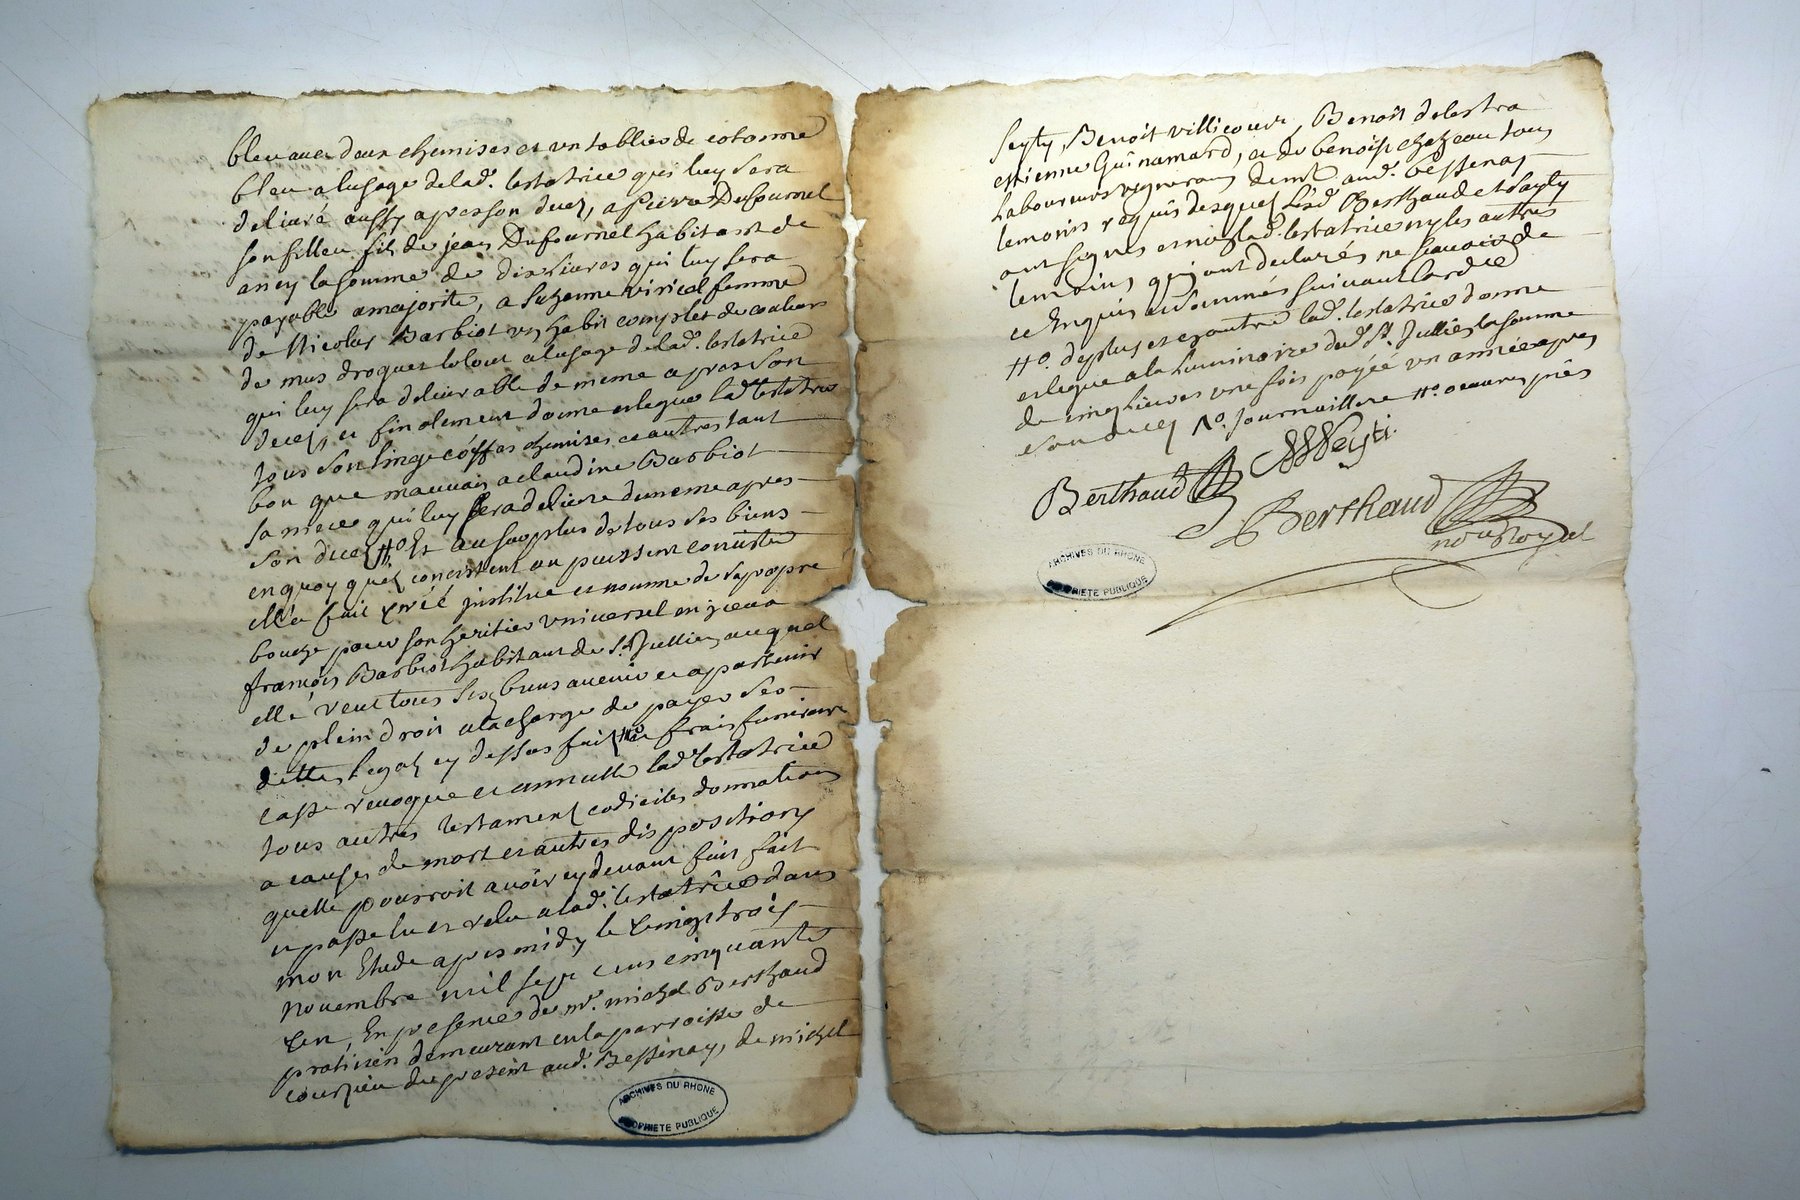 bleu avec deux chemises et un tablier de cotonne
bleu a lusage de lad. testatrice qui luy sera
delivré aussy apres son deces, a pierre Dufournel
son filleul fils de jean Dufournel habitant de
ancy la somme de dix livres qui luy sera
payable a majorité, a Suzanne viricel femme
de Nicolas Barbiot un habit complet de couleur
de mus droguet le tout a lusage de lad. testatrice
qui luy sera delivrable de meme apres son
deces, et finalement donne et legue lad testatrice
tous son linge coëffes chemises et autres tant
bon que mauvais a claudine Barbiot
sa niece qui luy sera delivré de meme apres
son deces Et au surplus de tous ses biens
en quoy quel consistent ou puissent consister
elle a fait créé institue et nomme de sa propre
bouche pour son heritier universel
françois Barbiot habitant de St. Jullien auquel
elle veut tous ses biens avenir et apartenir
de plein droit a la charge de payer ses
dettes legats cy dessus fait et frais funeraire
casse revoque et annulle lad testatrice
tous autres testament codiciles donnations
a causes de mort et autres dispositions
quelle pourroit avoir cy devant fait fait
et passé lu et relu a lad. testatrice dans
mon Etude apres midy le vingt trois
novembre mil sept cens cinquante
un, En presence de mr. michel Berthaud
praticien demeurant en la parroisse de
courzieu de present aud. Bessenay, de michel
ARCHIVES DU RHONE
PROPRIETE PUBLIQUE
Seyty, Benoit villicourt, Benoit delestra
estienne Guinamard, et de benoist chazeau tous
Laboureurs vignerons demt. aud. bessenay
temoins requis desquels lesd Berthaud et Seyty
ont signés et non lad. testatrice ny les autres
temoins qui ont declarés ne scavoir de
ce Enquis et sommés suivant lordce
#o. de plus et en outre lad. testatrice donne
et legue a la Luminaire dud St. Jullien la somme
de cinq livres une fois payée un année apres
son deces No. journaillere #o. oeuvres pies
Berthaud MSeyti
Berthaud
no. Royal
ARCHIVES DU RHONE
PROPRIETE PUBLIQUE